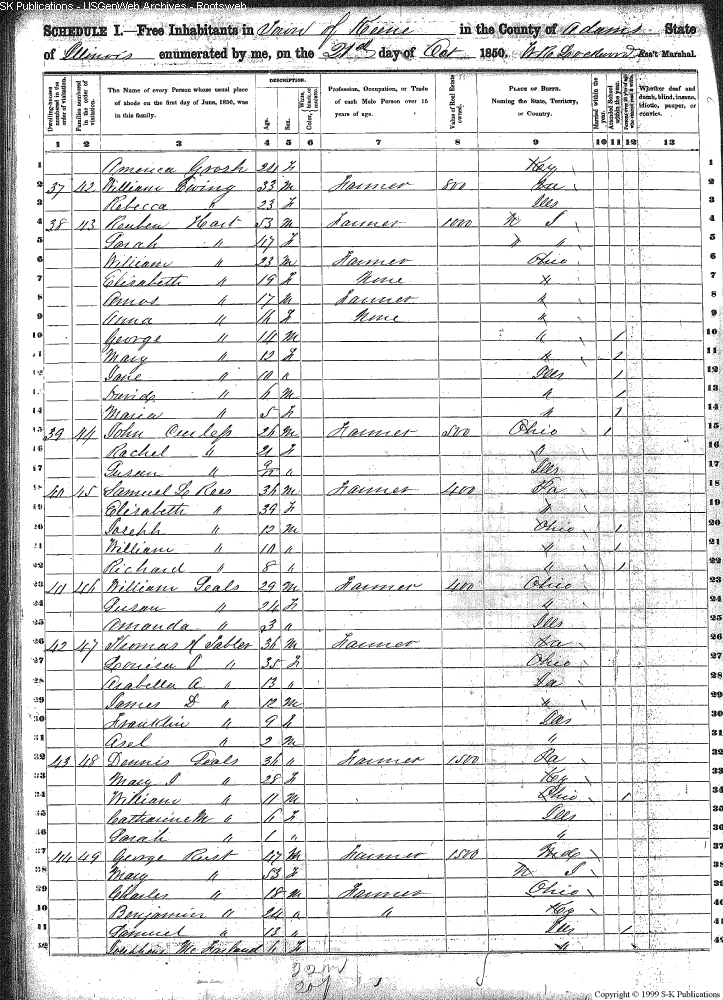 SK Publications - USGenWeb Archives - Rootsweb
SCHEDULE I.—Free Inhabitants in Town of Keene in the County of Adams State
of Illinois enumerated by me, on the 21st day of Oct 1850. Ass't Marshal.
Dwelling-houses numbered in the order of visitation.
Families numbered in the order of visitation.
The Name of every Person whose usual place of abode on the first day of June, 1850, was in this family.
DESCRIPTION.
Age.
Sex.
Color, White, black, or mulatto.
Profession, Occupation, or Trade of each Male Person over 15 years of age.
Value of Real Estate owned.
PLACE OF BIRTH. Naming the State, Territory, or Country.
Married within the year.
Attended School within the year.
Whether deaf and dumb, blind, insane, idiotic, pauper, or convict.
1 2 3 4 5 6 7 8 9 10 11 12 13
1 America Grosh 24 f Key 1
2 37 42 William Ewing 33 m Farmer 800 2
3 Rebecca " 23 f Ills 3
4 38 43 Reuben Hart 53 m Farmer 1000 N J 4
5 Sarah " 47 f " " 5
6 William " 23 m Farmer Ohio 6
7 Elisabeth " 19 f None " 7
8 Amos " 17 m Farmer " 8
9 Anna " 16 f None " 9
10 George " 14 m " 1 10
11 Mary " 12 f " 1 11
12 Jane " 10 " Ills 1 12
13 David " 6 m " 1 13
14 Maria " 5 f " 1 14
15 39 44 John Curless 26 m Farmer 500 Ohio 1 15
16 Rachel " 21 f " 16
17 Susan " " Ills 17
18 40 45 Samuel S Rees 36 m Farmer 400 Pa 18
19 Elisabeth " 39 f " 19
20 Joseph " 12 m Ohio 1 20
21 William " 10 " " 1 21
22 Richard " 8 " " 1 22
23 41 46 William Seals 29 m Farmer 400 Ohio 23
24 Susan " 24 f " 24
25 Amanda " 3 " Ills 25
26 42 47 Thomas H Tabler 36 m Farmer Va 26
27 Louisa " 35 f Ohio 27
28 Arabella A " 13 " 28
29 James D " 12 m " 29
30 Franklin " 9 Ills 30
31 Asel " 2 m " 31
32 43 48 Dennis Seals 36 " Farmer 1500 Pa 32
33 Mary " 28 f Key 33
34 William " 11 m Ohio 1 34
35 Catharine M " 6 f Ills 35
36 Sarah " 1 " " 36
37 44 49 George Rust 47 m Farmer 1500 Md 37
38 Mary " 53 f N J 38
39 Charles " 18 m Farmer Ohio 39
40 Benjamin " 24 " " Key 40
41 Samuel " 13 " Ills 1 41
42 McFarland 6 f " 42
Copyright © 1999 S-K Publications